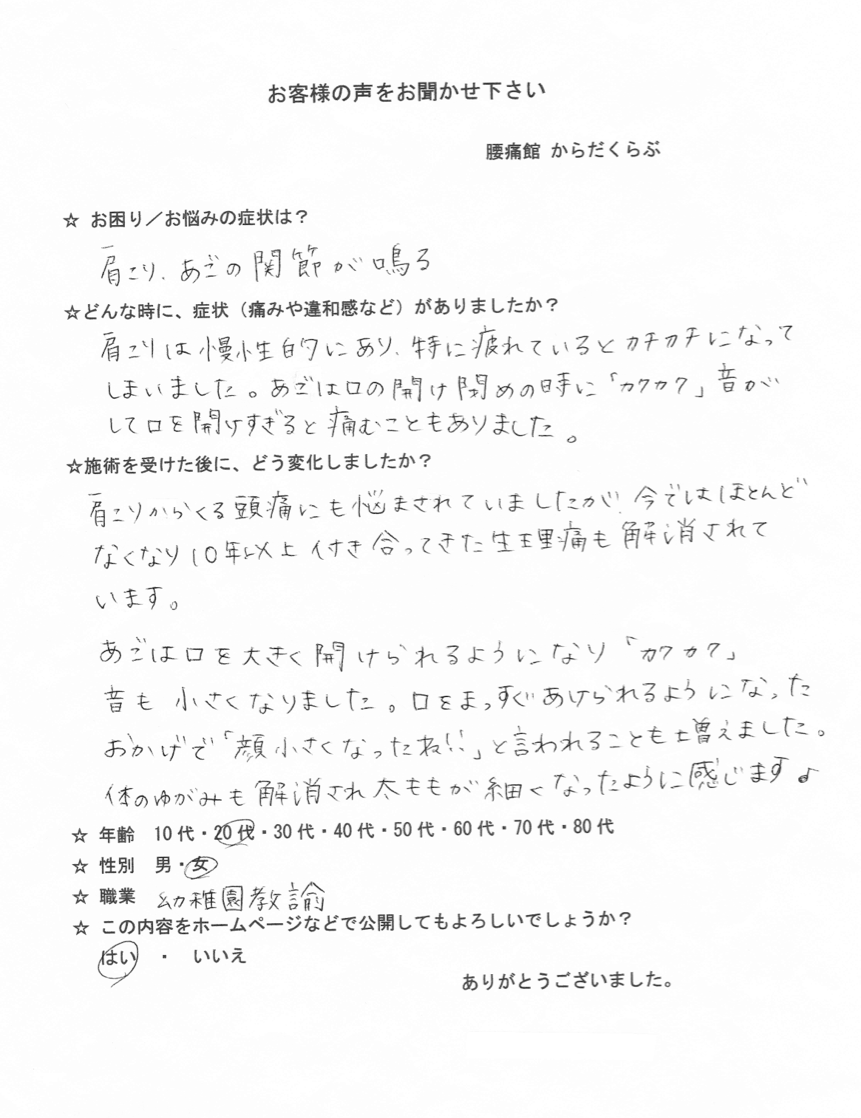 お客様の声をお聞かせ下さい
腰痛館 からだくらぶ
☆ お困り／お悩みの症状は？
肩こり、あごの関節が鳴る
☆どんな時に、症状（痛みや違和感など）がありましたか？
肩こりは慢性的にあり、特に疲れているとカチカチになって
しまいました。あごは口の開け閉めの時に「カクカク」音が
して口を開けすぎると痛むこともありました。
☆施術を受けた後に、どう変化しましたか？
肩こりからくる頭痛にも悩まされていましたが、今ではほとんど
なくなり10年以上付き合ってきた生理痛も解消されて
います。
あごは口を大きく開けられるようになり「カクカク」
音も小さくなりました。口をまっすぐあけられるようになった
おかげで「顔小さくなったね!!」と言われることも増えました。
体のゆがみも解消され太ももが細くなったように感じます♪
☆ 年齢 10代・20代・30代・40代・50代・60代・70代・80代
☆ 性別 男・女
☆ 職業 幼稚園教諭
☆ この内容をホームページなどで公開してもよろしいでしょうか？
はい ・ いいえ
ありがとうございました。